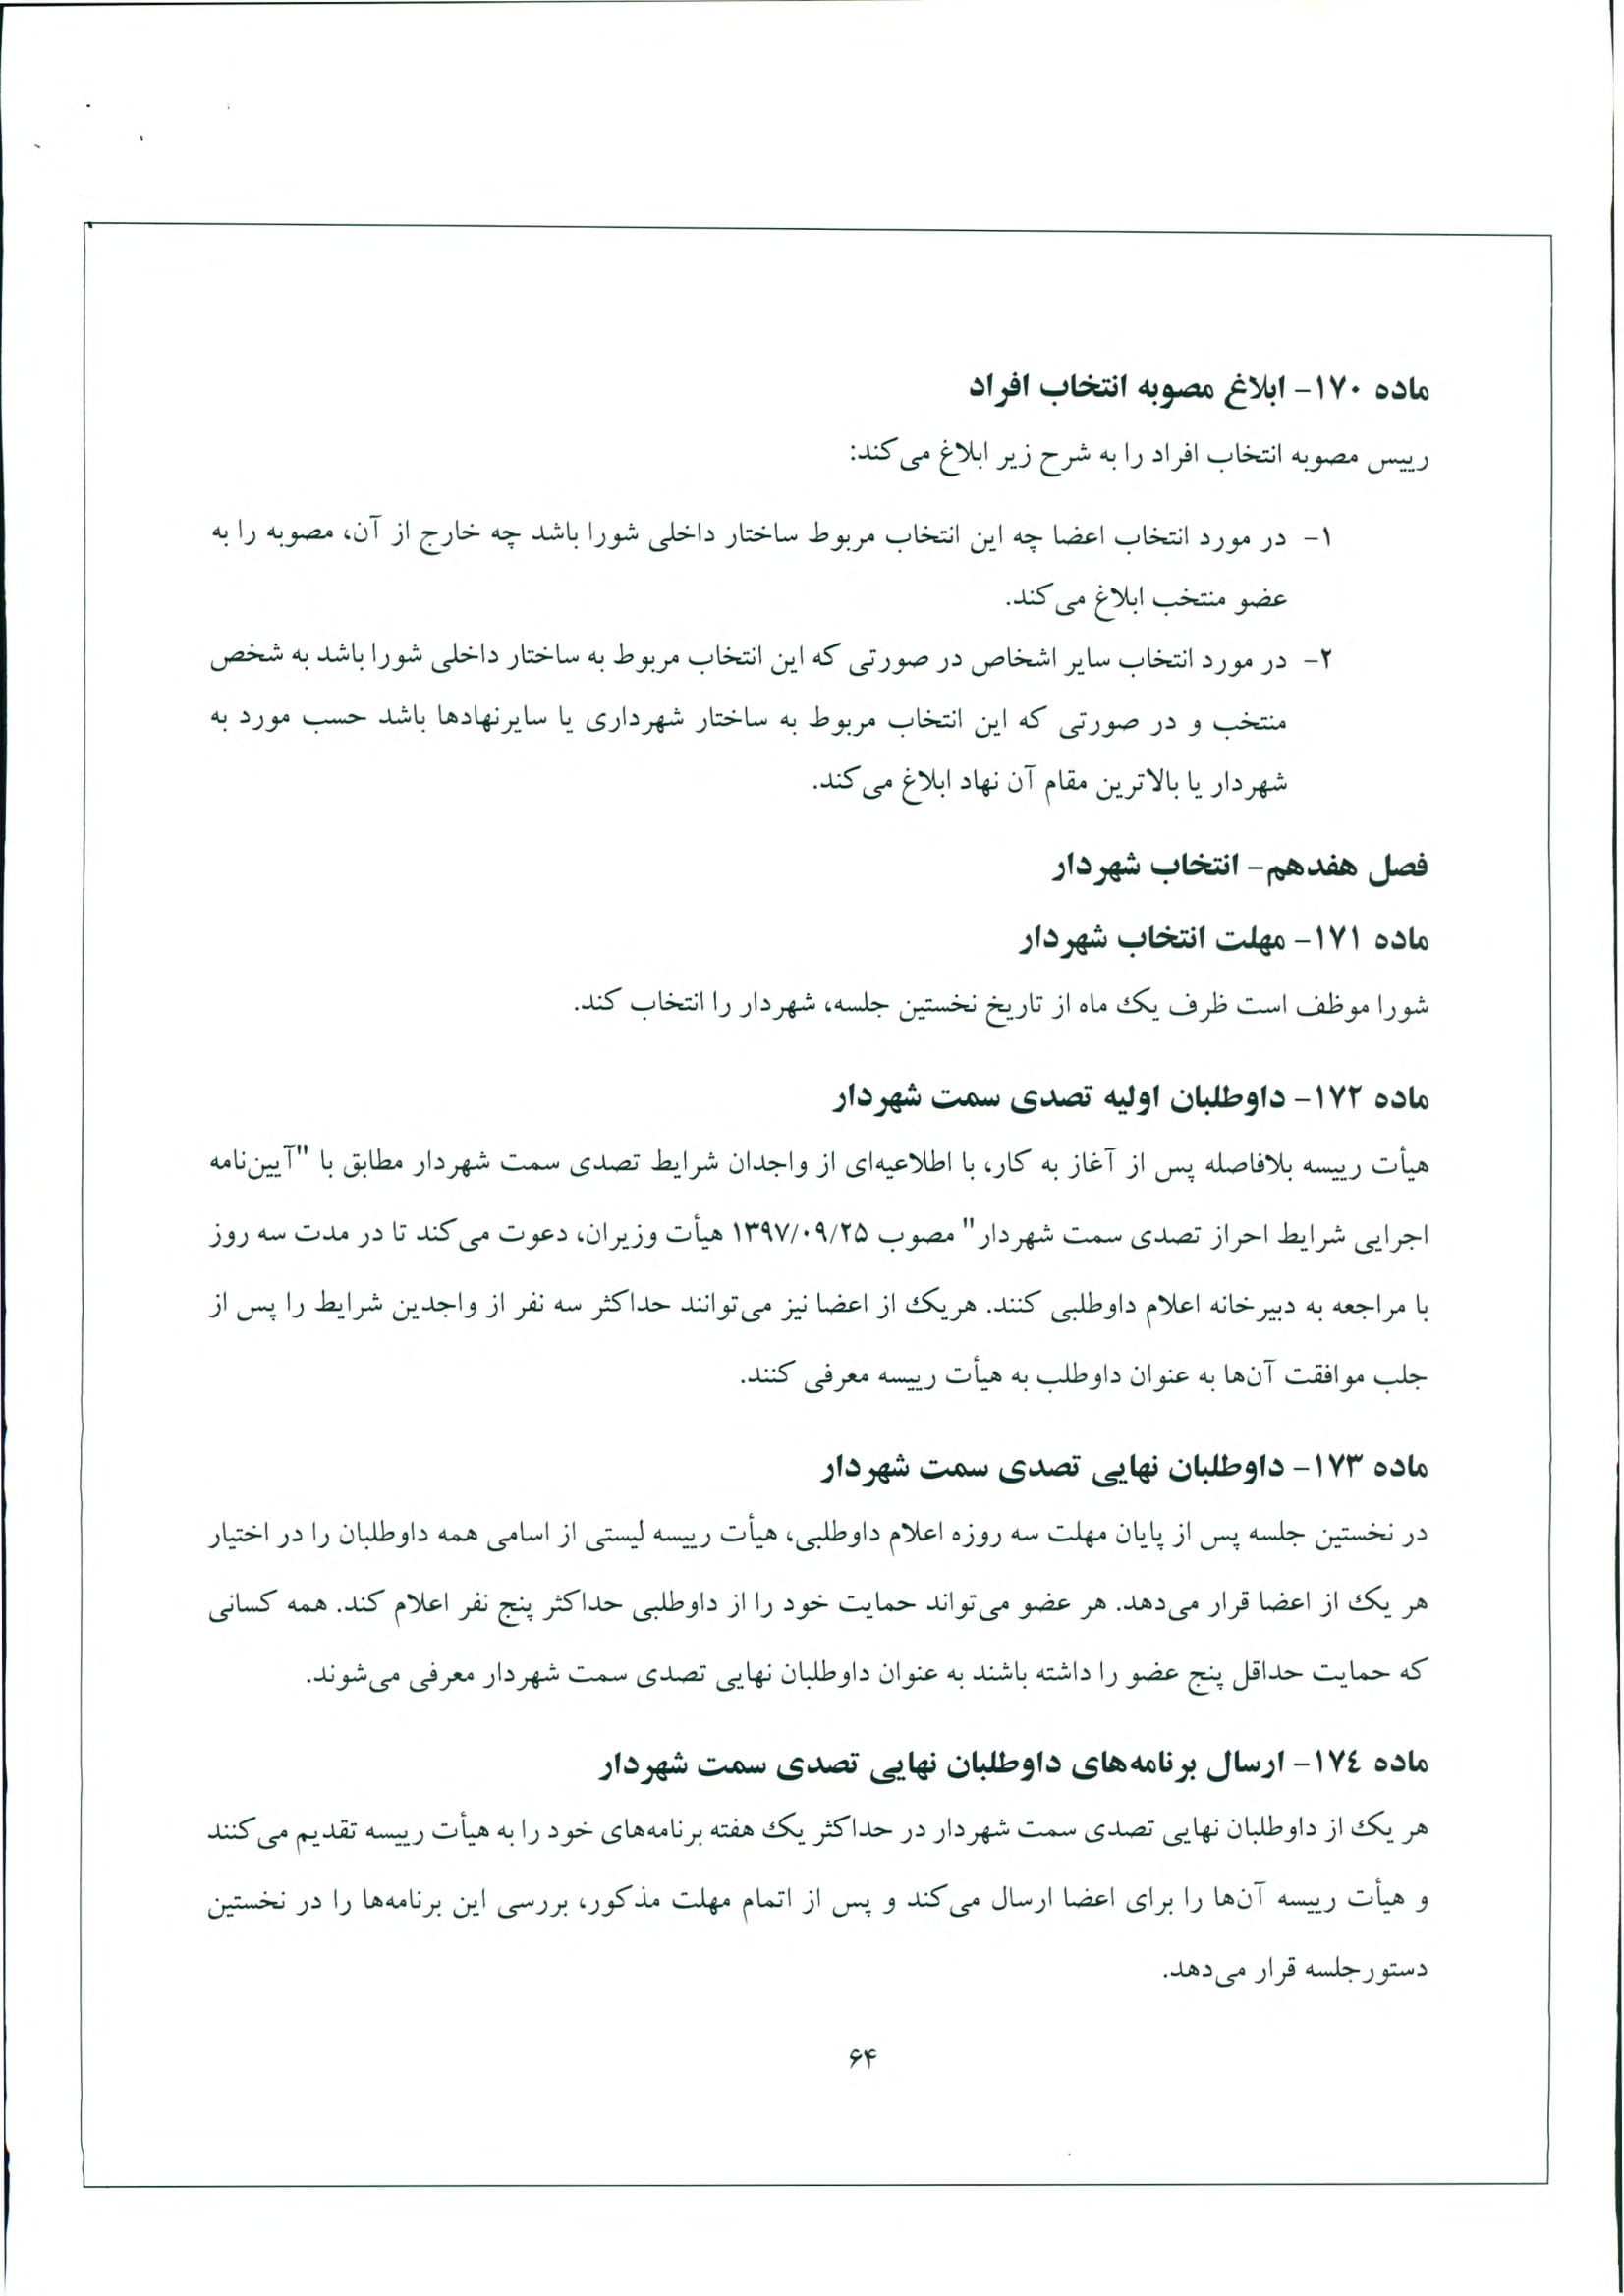 ماده ۱۷۰- ابلاغ مصوبه انتخاب افراد
رییس مصوبه انتخاب افراد را به شرح زیر ابلاغ می‌کند:
۱- در مورد انتخاب اعضا چه این انتخاب مربوط ساختار داخلی شورا باشد چه خارج از آن، مصوبه را به
عضو منتخب ابلاغ می‌کند.
۲- در مورد انتخاب سایر اشخاص در صورتی که این انتخاب مربوط به ساختار داخلی شورا باشد به شخص
منتخب و در صورتی که این انتخاب مربوط به ساختار شهرداری یا سایرنهادها باشد حسب مورد به
شهردار یا بالاترین مقام آن نهاد ابلاغ می‌کند.
فصل هفدهم- انتخاب شهردار
ماده ۱۷۱- مهلت انتخاب شهردار
شورا موظف است ظرف یک ماه از تاریخ نخستین جلسه، شهردار را انتخاب کند.
ماده ۱۷۲- داوطلبان اولیه تصدی سمت شهردار
هیأت رییسه بلافاصله پس از آغاز به کار، با اطلاعیه‌ای از واجدان شرایط تصدی سمت شهردار مطابق با "آیین‌نامه
اجرایی شرایط احراز تصدی سمت شهردار" مصوب ۱۳۹۷/۰۹/۲۵ هیأت وزیران، دعوت می‌کند تا در مدت سه روز
با مراجعه به دبیرخانه اعلام داوطلبی کنند. هریک از اعضا نیز می‌توانند حداکثر سه نفر از واجدین شرایط را پس از
جلب موافقت آن‌ها به عنوان داوطلب به هیأت رییسه معرفی کنند.
ماده ۱۷۳- داوطلبان نهایی تصدی سمت شهردار
در نخستین جلسه پس از پایان مهلت سه روزه اعلام داوطلبی، هیأت رییسه لیستی از اسامی همه داوطلبان را در اختیار
هر یک از اعضا قرار می‌دهد. هر عضو می‌تواند حمایت خود را از داوطلبی حداکثر پنج نفر اعلام کند. همه کسانی
که حمایت حداقل پنج عضو را داشته باشند به عنوان داوطلبان نهایی تصدی سمت شهردار معرفی می‌شوند.
ماده ۱۷٤- ارسال برنامه‌های داوطلبان نهایی تصدی سمت شهردار
هر یک از داوطلبان نهایی تصدی سمت شهردار در حداکثر یک هفته برنامه‌های خود را به هیأت رییسه تقدیم می‌کنند
و هیأت رییسه آن‌ها را برای اعضا ارسال می‌کند و پس از اتمام مهلت مذکور، بررسی این برنامه‌ها را در نخستین
دستورجلسه قرار می‌دهد.
۶۴